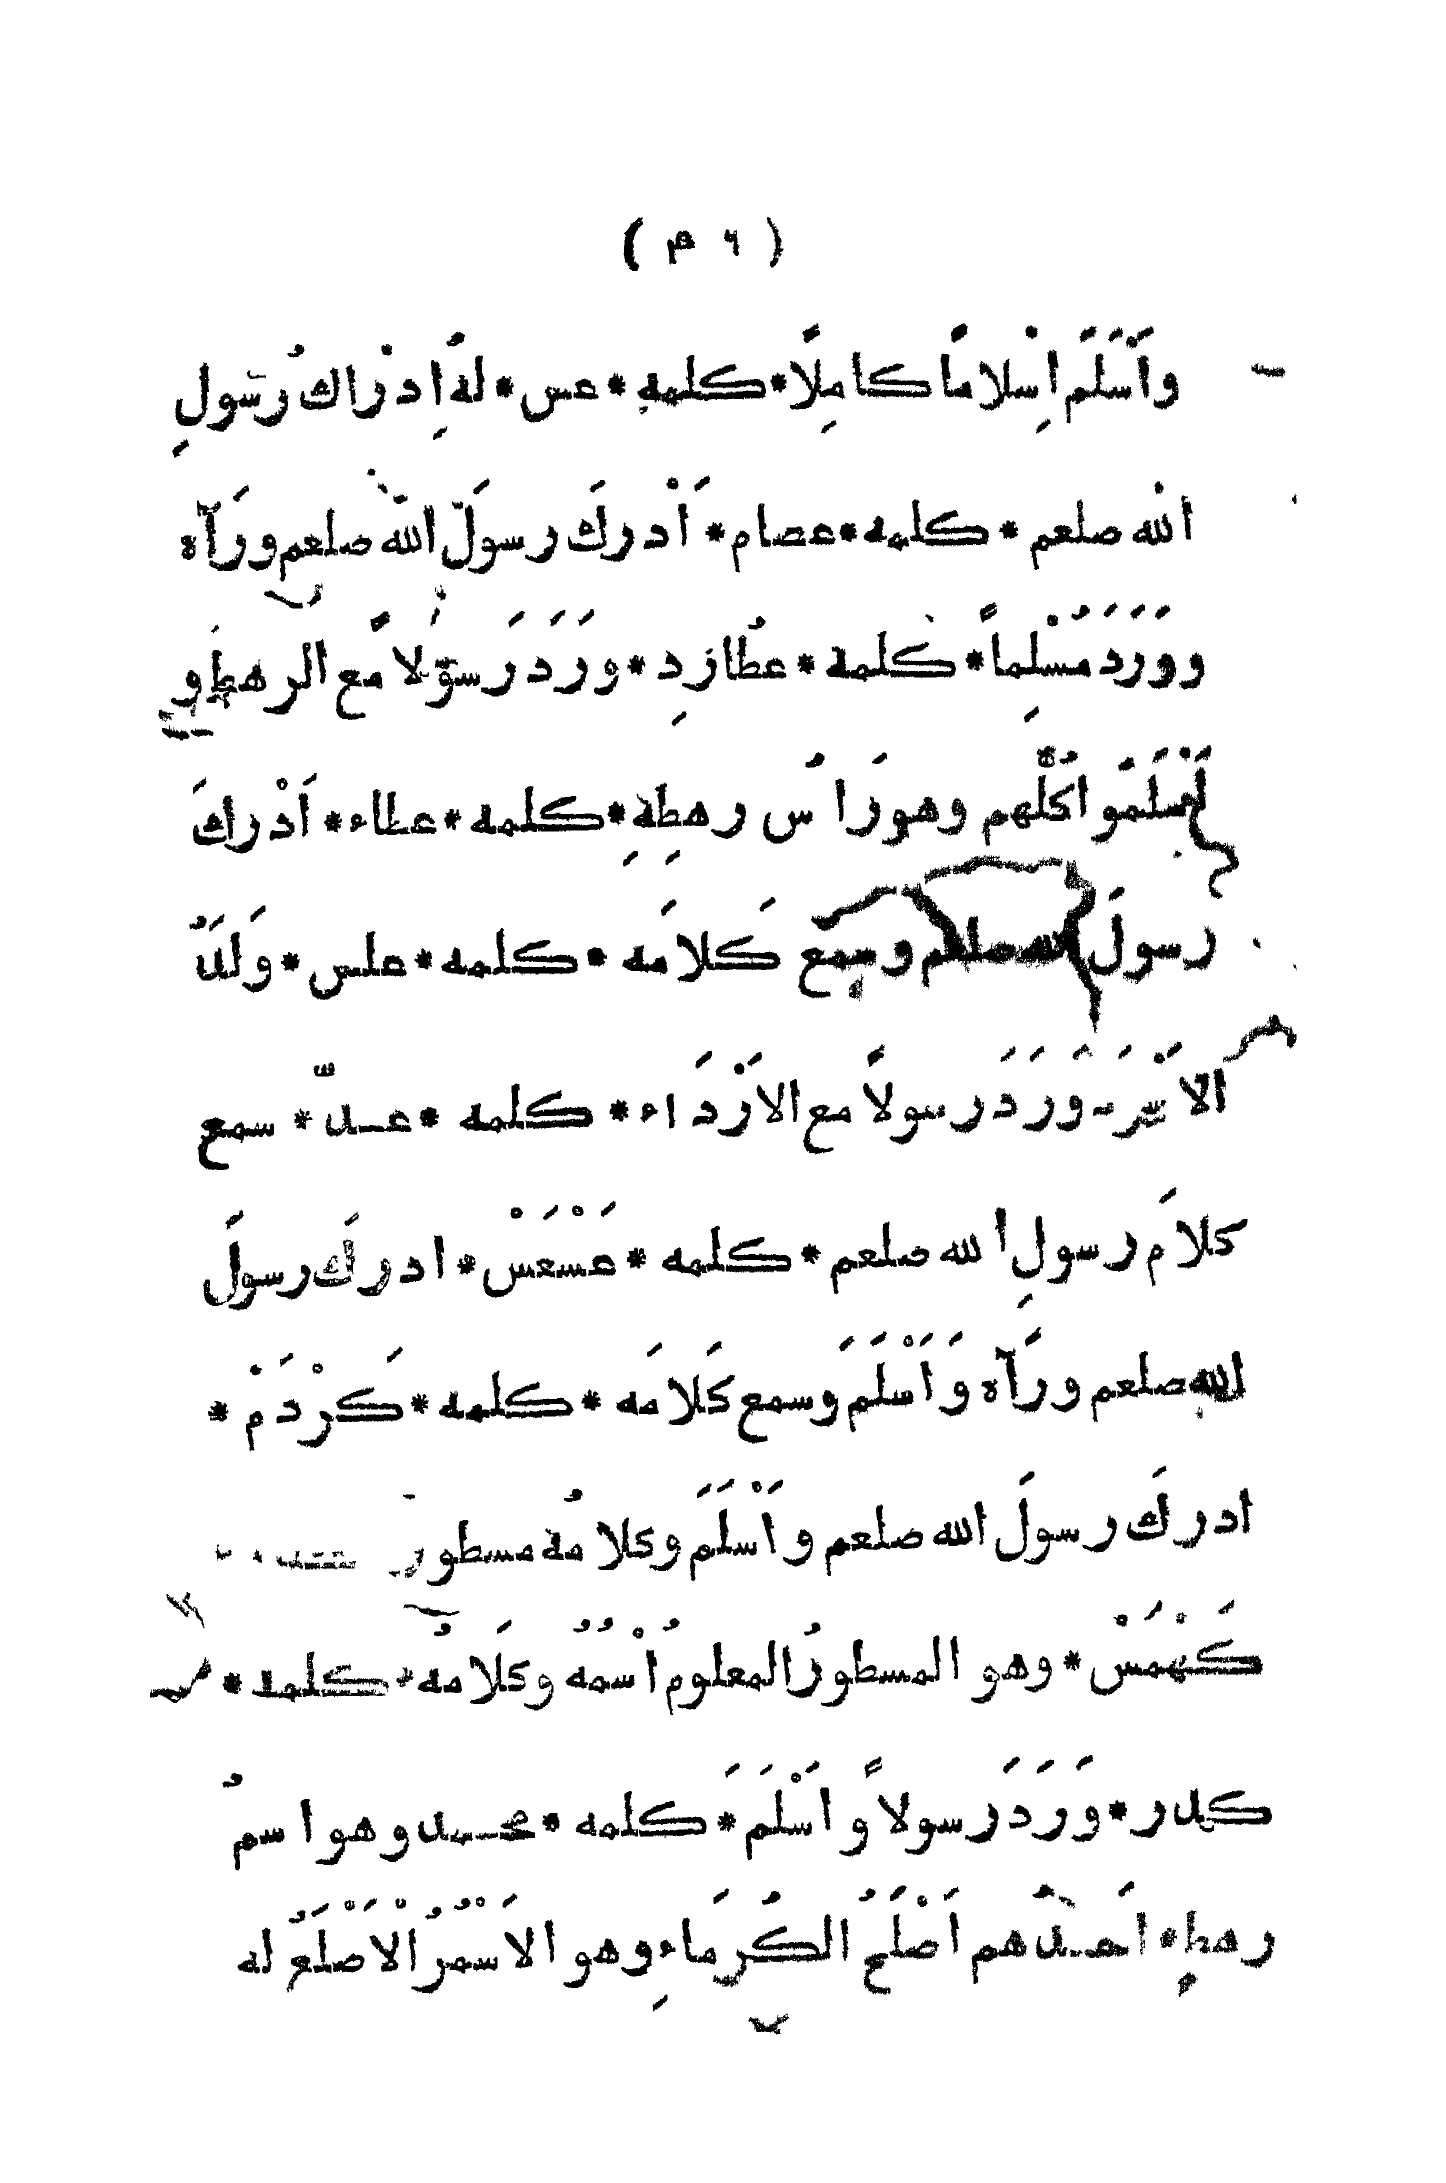 ( ٦ م )
وَاَسْلَمَ اِسْلامًا كامِلًا * كلمه * عس * لهُ اِدْرَاكُ رَسُولِ
الله صلعم * كلمه * عصام * اَدْرَكَ رسولَ اللّٰه صلعم وَرَآه
ووَرَدَ مُسْلِمًا * كلمه * عطُارِدِ * وَرَدَ رَسوْلاً مع الرهطِ و
اَسْلَمُوا كُلُّهم وهو رَاسُ رهطِهِ * كلمه * عطاء * اَدْرَكَ
رسولَ الله صلعم وسمع كَلاَمَه * كلمه * علس * وَلَدُ
الا وَرَدَ رسولاً مع الارْدَاء * كلمه * عدّس * سمع
كلاَم رسولِ الله صلعم * كلمه * عَسْعَسْ * ادركَ رسولَ
الله صلعم وَرَآه وَاَسْلَمَ وسمع كَلاَمَه * كلمه * كَرْدَمْ *
ادركَ رسولَ الله صلعم وَاَسْلَمَ وكلامُه مسطور
كَهْمَسْ * وهو المسطورُ المعلومُ اُسْمُهُ وكَلاَمُه * كلمه *
كدر * وَرَدَ رسولاً وَاَسْلَمَ * كلمه * محمد وهو اسمُ
رهطٍ * اَحدُهم اَصْلَحُ الكُرَمَاءِ وهو الاَسْمُرُ الاَصْلَعُ له